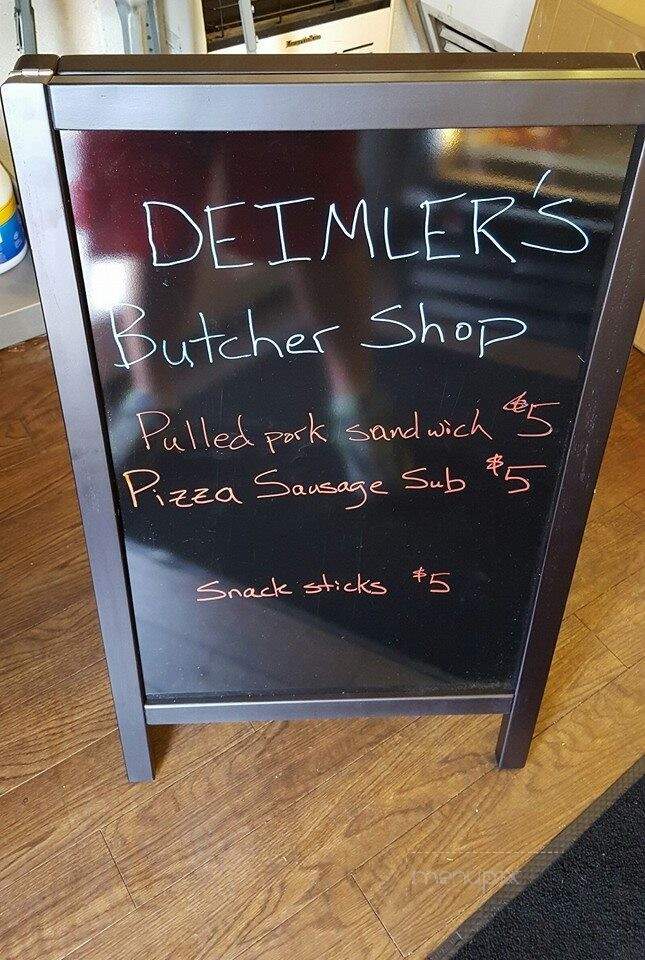 DEIMLER'S
Butcher Shop
Pulled pork sandwich $5
Pizza Sausage Sub $5
Snack sticks $5
menupix